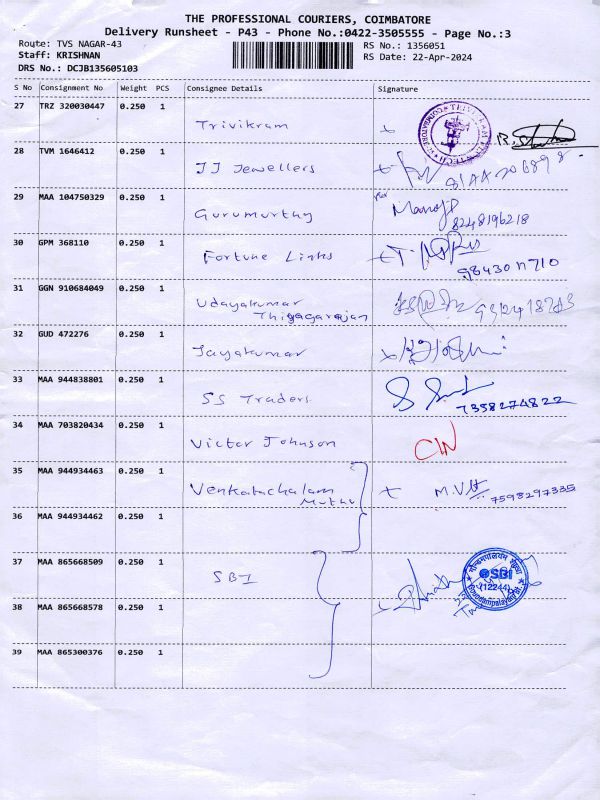 THE PROFESSIONAL COURIERS, COIMBATORE
Delivery Runsheet - P43 - Phone No.:0422-3505555 - Page No.:3
Route: TVS NAGAR-43
Staff: KRISHNAN
DRS No.: DCJB135605103
RS No.: 1356051
RS Date: 22-Apr-2024
S No Consignment No Weight PCS Consignee Details Signature
27 TRZ 320030447 0.250 1
Trivikram
28 TVM 1646412 0.250 1
JJ Jewellers
29 MAA 104750329 0.250 1
Gurumurthy
Manoj
8248196218
30 GPM 368110 0.250 1
Fortune Links
31 GGN 910684049 0.250 1
Udayakumar
Thigagarajan
32 GUD 472276 0.250 1
Jayakumar
33 MAA 944838801 0.250 1
SS Traders
7358274822
34 MAA 703820434 0.250 1
Victor Johnson
35 MAA 944934463 0.250 1
Venkatachalam
Muthu
M.V
7598297335
36 MAA 944934462 0.250 1
37 MAA 865668509 0.250 1
SBI
SBI
(12244)
38 MAA 865668578 0.250 1
39 MAA 865300376 0.250 1